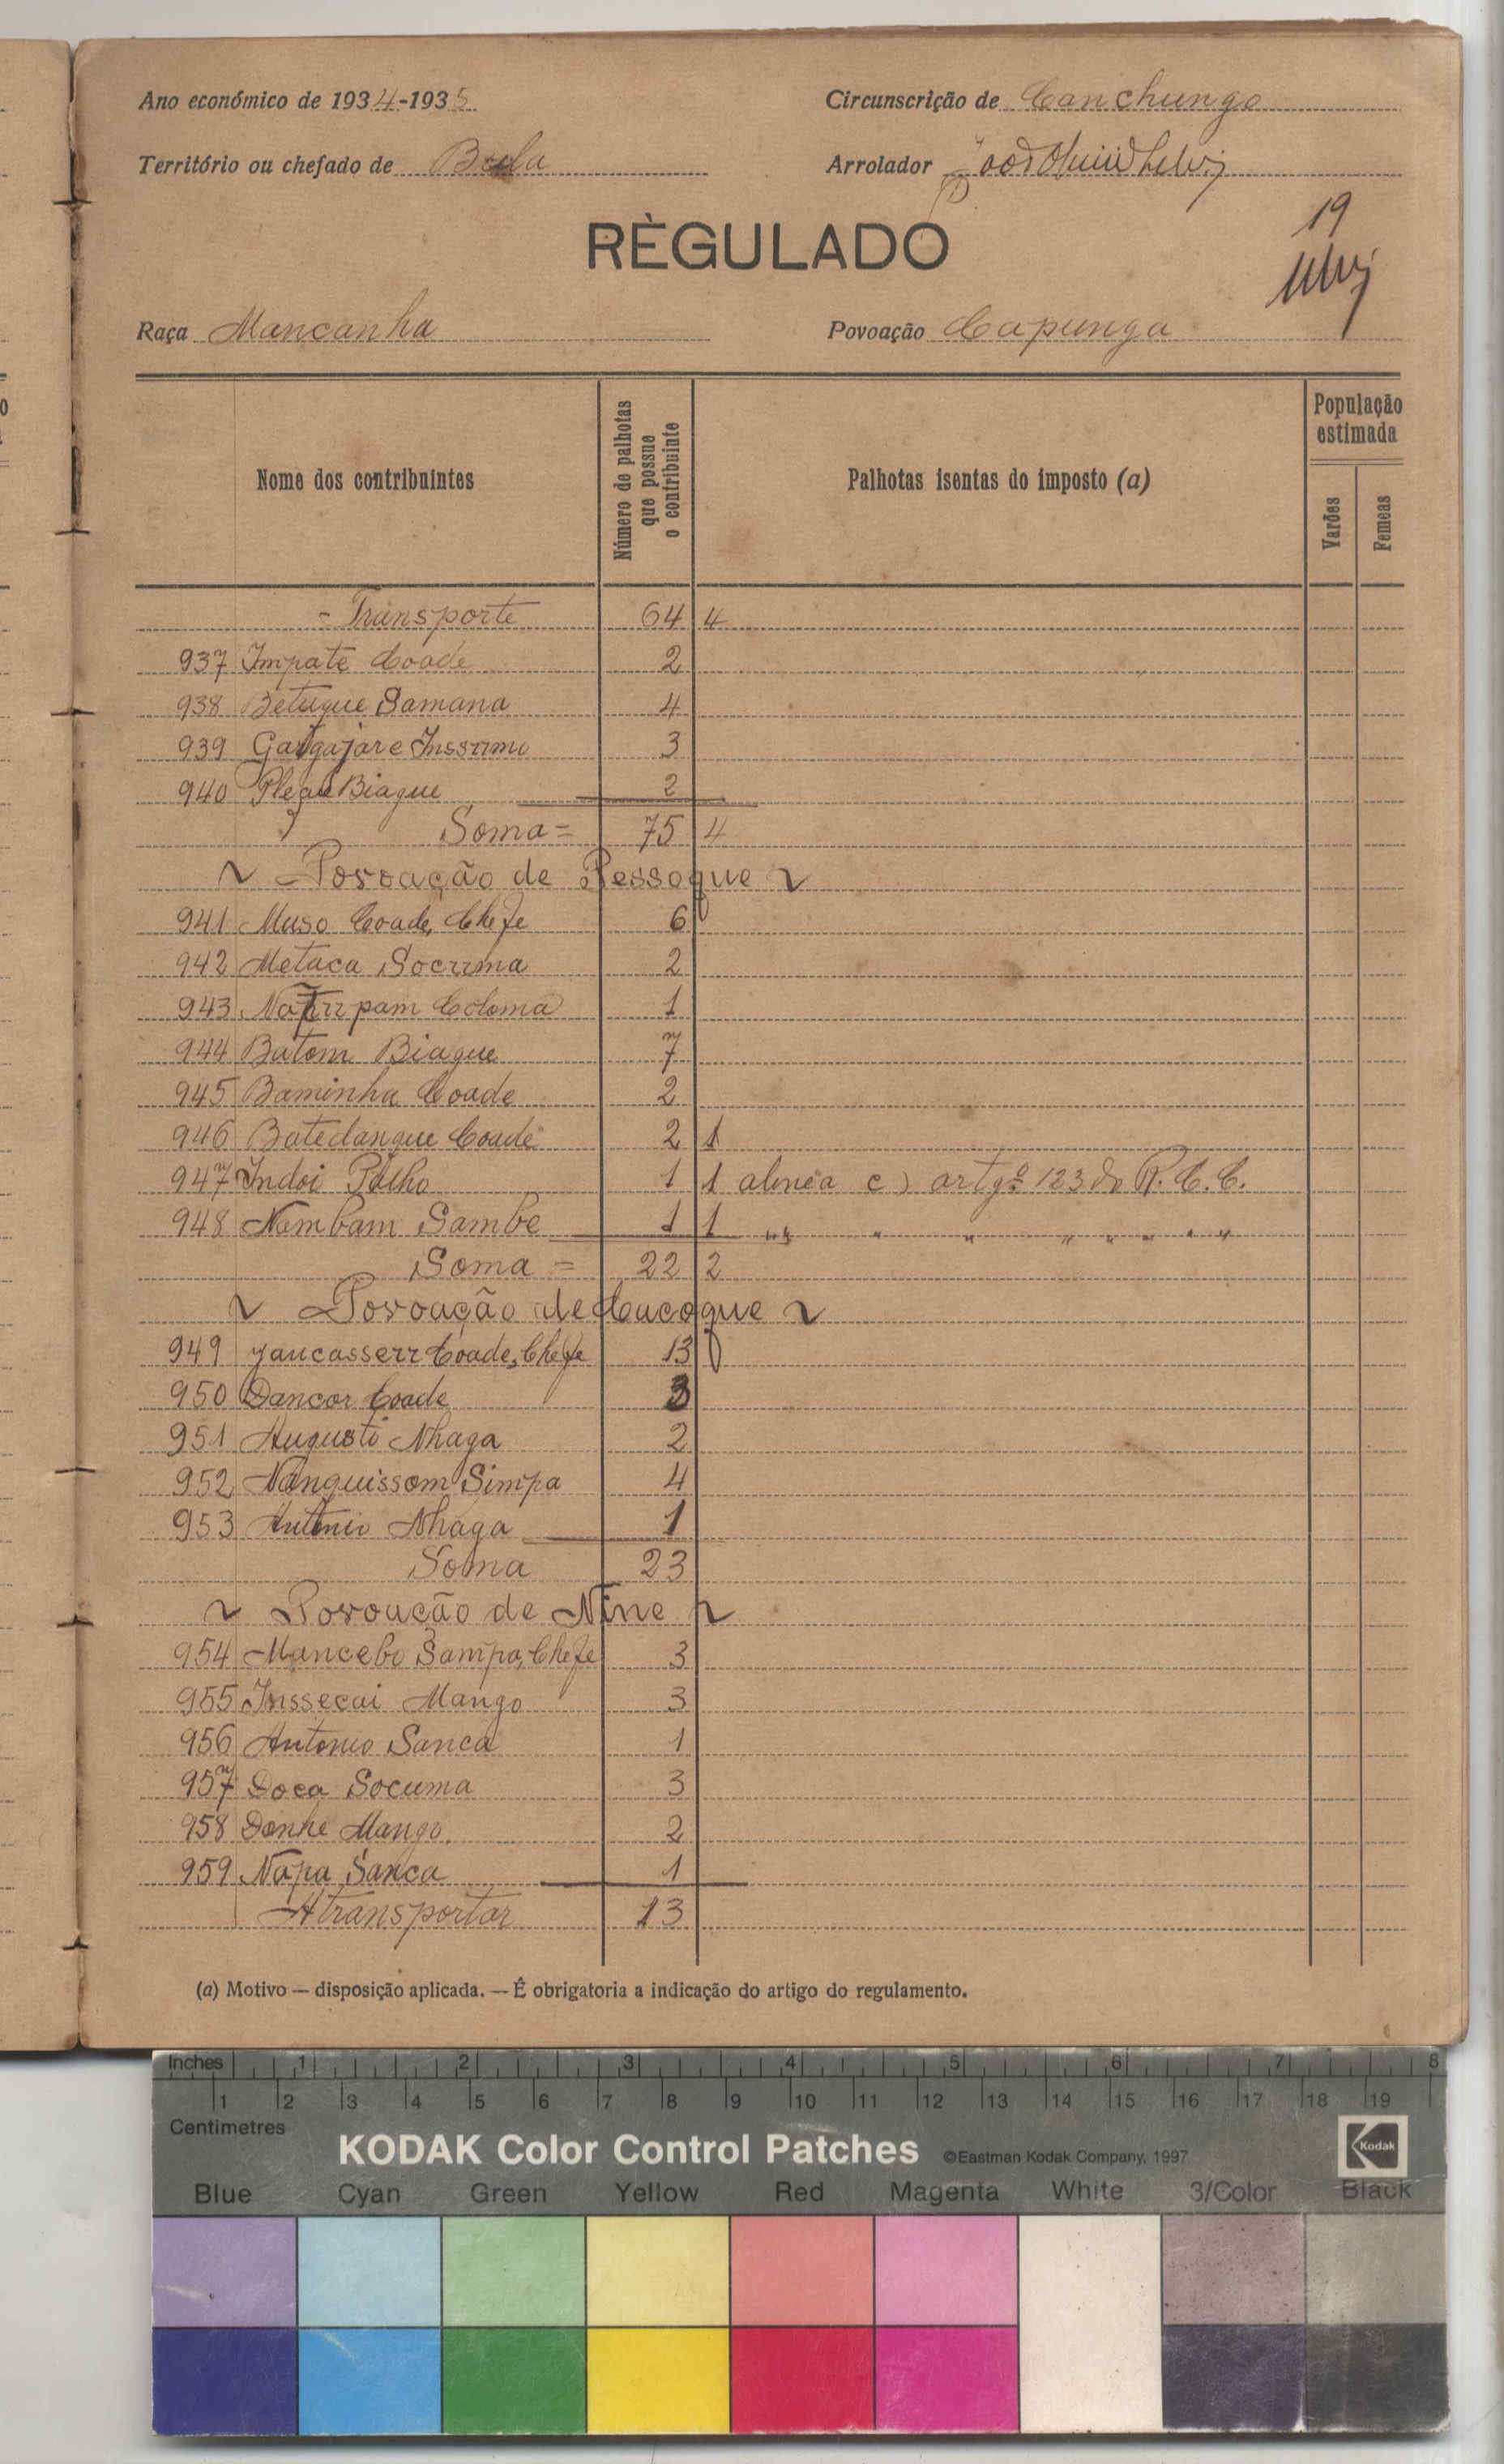 Ano económico de 1934-1935
Circunscrição de Canchungo
Território ou chefado de Bula
Arrolador
RÈGULADO
19
Raça Mancanha
Povoação Capunga
Nome dos contribuintes
Número de palhotas que possue o contribuinte
Palhotas isentas do imposto (a)
População estimada
Varões
Femeas
- Transporte 64 4
937 Impate Coade 2
938 Betuque Samana 4
939 Inssumo 3
940 Biague 2
Soma = 75 4
Povoação de Pessoque
941 Muso Coade, Chefe 6
942 Metaca Socuma 2
943 Coloma 1
944 Batom Biague 7
945 Baminha Coade 2
946 Batedanque Coade 2 1
947 Indoi 1 1 alinea c) artgº 123 do R. C. C.
948 Nambam Sambe 1 1 " " " " " " " "
Soma = 22 2
Povoação de Cucoque
949 Yaucasserr Coade, Chefe 13
950 Dancor Coade 3
951 Augusto Nhaga 2
952 Nanquissom Simpa 4
953 Antonio Nhaga 1
Soma 23
Povoação de Nine
954 Mancebo Sampa, Chefe 3
955 Inssecai Mango 3
956 Antonio Sanca 1
957 Doca Socuma 3
958 Donhe Mango. 2
959 Napa Sanca 1
A transportar 13
(a) Motivo — disposição aplicada. — É obrigatoria a indicação do artigo do regulamento.
Inches 1 2 3 4 5 6 7 8
1 2 3 4 5 6 7 8 9 10 11 12 13 14 15 16 17 18 19
Centimetres
KODAK Color Control Patches ©Eastman Kodak Company, 1997 Kodak
Blue Cyan Green Yellow Red Magenta White 3/Color Black